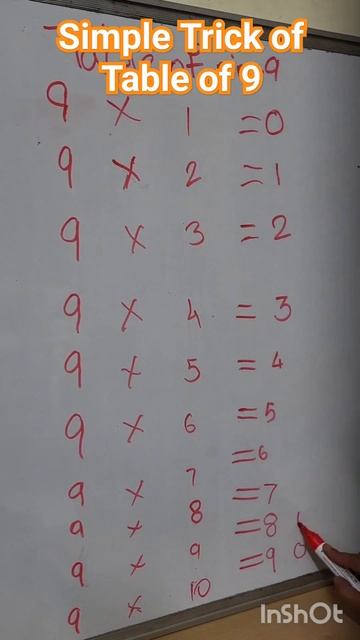 Simple Trick of
Table of 9
9
9 × 1 = 0
9 × 2 = 1
9 × 3 = 2
9 × 4 = 3
9 × 5 = 4
9 × 6 = 5
9 × 7 = 6
9 × 8 = 7
9 × 9 = 8 1
9 × 10 = 9 0
InShOt